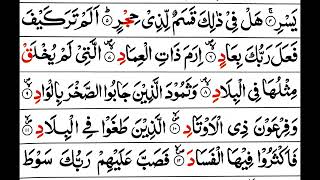 يَسْرِ ۞ هَلْ فِىْ ذٰلِكَ قَسَمٌ لِّذِىْ حِجْرٍ ۞ اَلَمْ تَرَ كَيْفَ
فَعَلَ رَبُّكَ بِعَادٍ ۞ اِرَمَ ذَاتِ الْعِمَادِ ۞ الَّتِىْ لَمْ يُخْلَقْ
مِثْلُهَا فِى الْبِلَادِ ۞ وَثَمُوْدَ الَّذِيْنَ جَابُوا الصَّخْرَ بِالْوَادِ ۞
وَفِرْعَوْنَ ذِى الْاَوْتَادِ ۞ الَّذِيْنَ طَغَوْا فِى الْبِلَادِ ۞
فَاَكْثَرُوْا فِيْهَا الْفَسَادَ ۞ فَصَبَّ عَلَيْهِمْ رَبُّكَ سَوْطَ